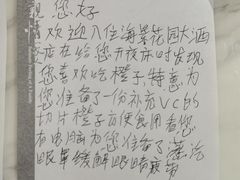 您好
欢迎入住海景花园大酒
店在给您开夜床时发现
您喜欢吃橙子,特意为
您准备了一份补充VC的
切片橙子方便食用看您
有电脑为您准备了蒸汽
眼罩缓解眼睛疲劳